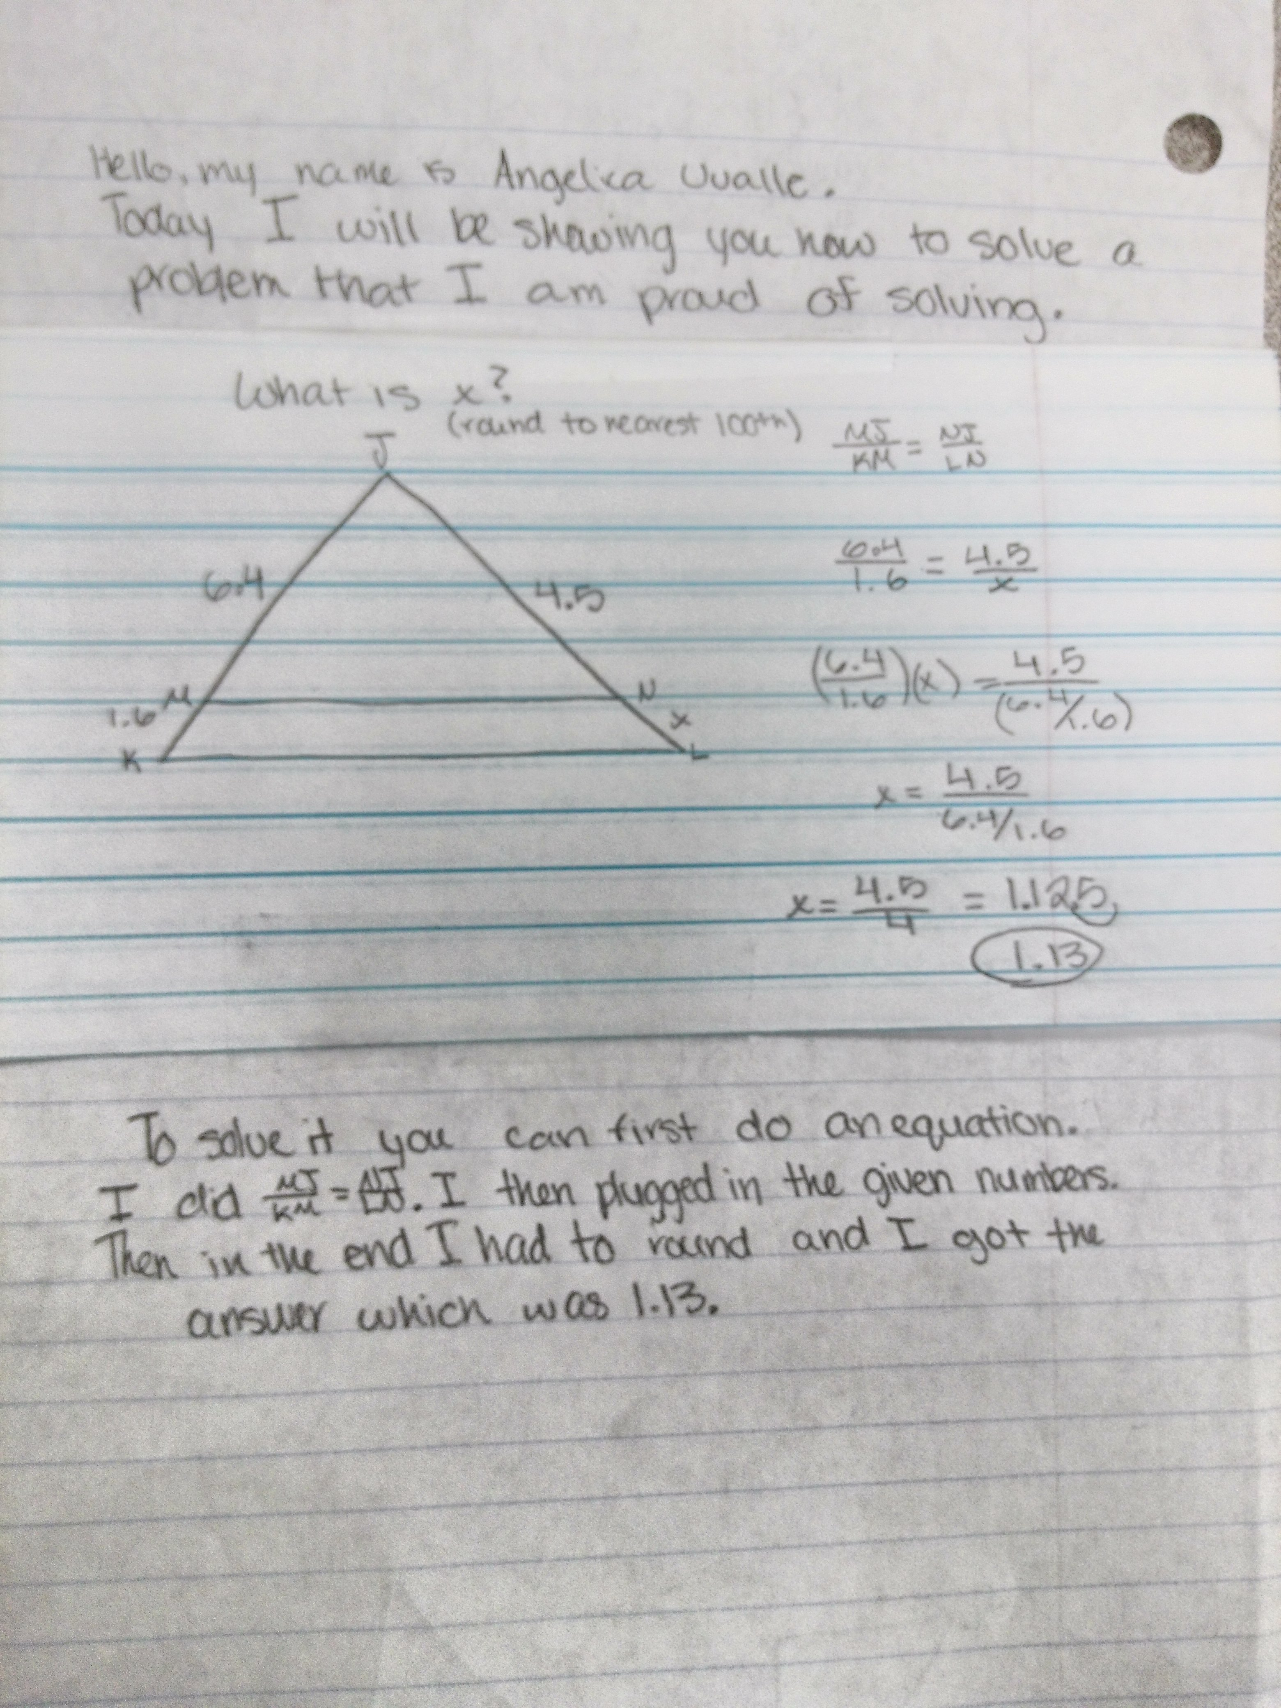 Hello, my name is Angelica Uvalle.
Today I will be showing you how to solve a
problem that I am proud of solving.
What is x?
(round to nearest 100th)
J
6.4
4.5
M
N
1.6
x
K
L
MJ/KM = NJ/LN
6.4/1.6 = 4.5/x
(6.4/1.6)(x) = 4.5/(6.4/1.6)
x = 4.5/6.4/1.6
x = 4.5/4 = 1.125
1.13
To solve it you can first do an equation.
I did MJ/KM = NJ/LN. I then plugged in the given numbers.
Then in the end I had to round and I got the
answer which was 1.13.